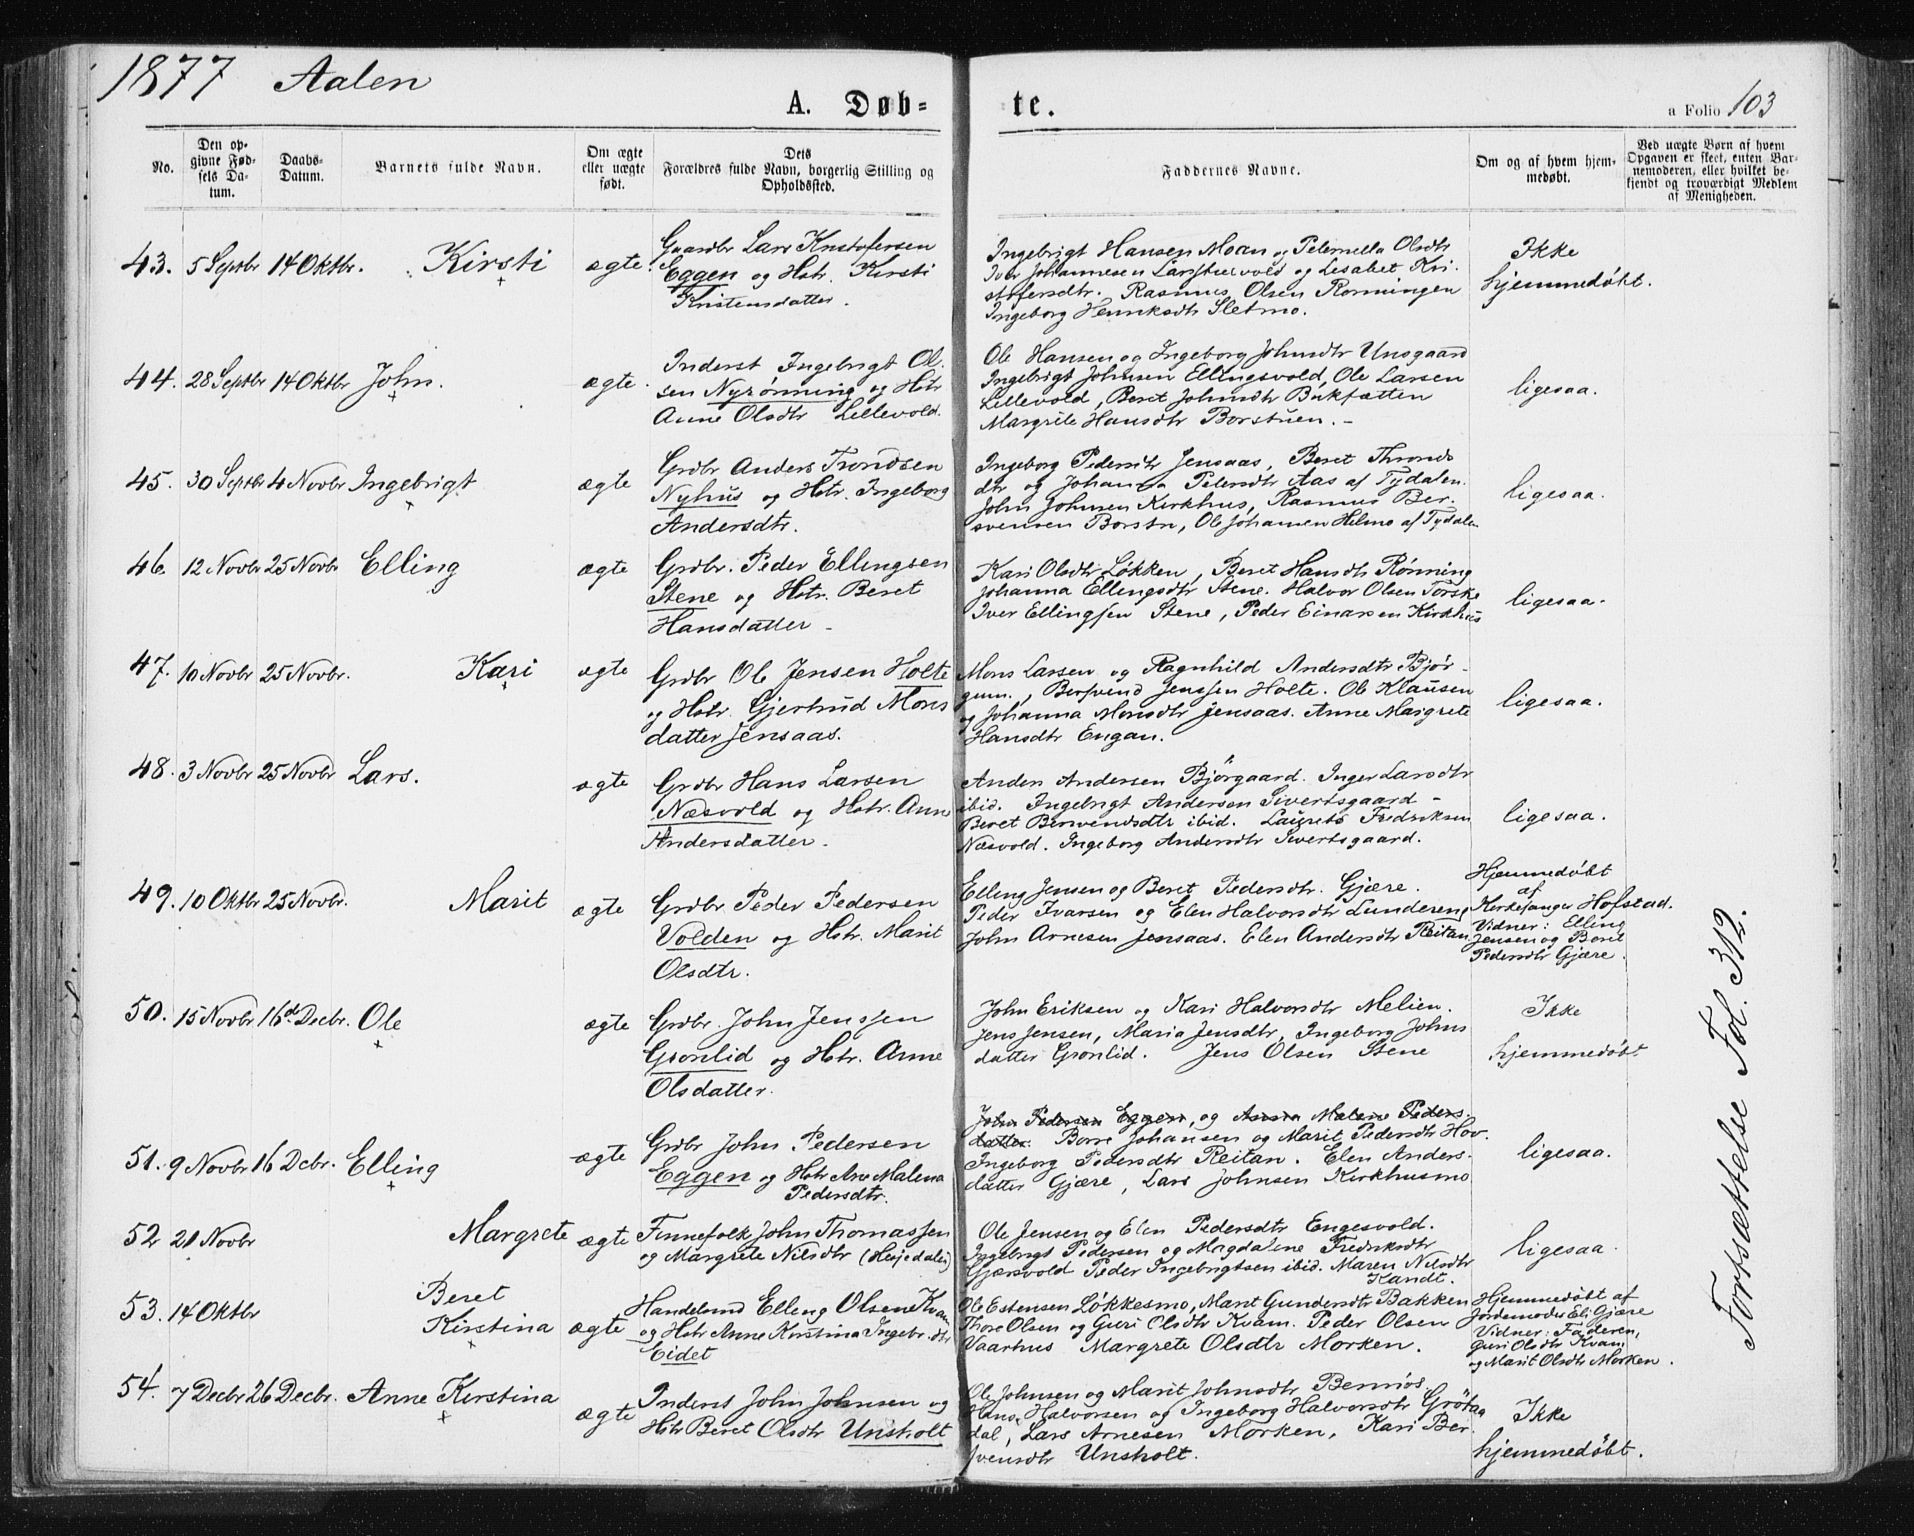 1877 Aalen
A. Døb-
te.
a Folio 103
No.
Den op-
givne Fød-
sels Da-
tum.
Daabs-
Datum.
Barnets fulde Navn.
Om ægte
eller uægte
født.
Dets
Forældres fulde Navn, borgerlig Stilling og
Opholdssted.
Faddernes Navne.
Om og af hvem hjem-
medøbt.
Ved uægte Børn af hvem
Opgaven er skeet, enten Bar-
nemoderen, eller hvilket be-
kjendt og troværdigt Medlem
af Menigheden.
43. 5 Septbr 14 Oktbr. Kirsti ægte.
Gaardbr Lars Kristofersen
Eggen og Hstr. Kirsti
Kristensdatter.
Ingebrigt Hansen Moan og Peternella Olsdtr
Iver Johannesen og Lisabet Kri-
stofersdtr. Rasmus Olsen Ronningen
Ingeborg Henriksdtr Sletmo.
Ikke
hjemmedøbt.
44. 28 Septbr 14 Oktbr John. ægte.
Inderst Ingebrigt Ol-
sen Nyrønning og Hstr
Anne Olsdtr Lillevold.
Ole Hansen og Ingeborg Johnsdtr Unsgaard
Ingebrigt Johnsen Ellingsvold, Ole Larsen
Lillevold, Beret Johnsdtr
Margrite Hansdtr Borstuen. -
ligesaa.
45. 30 Septbr 4 Novbr Ingebrigt ægte
Grdbr Anders Trondsen
Nyhus og Hstr. Ingeborg
Andersdtr.
Ingeborg Pedersdtr Jensaas, Beret Thronds
dtr og Johanna Petersdtr Aas af Tydalen.
John Johnsen Kirkhus, Rasmus Ber-
svensen Borstu, Ole Johansen Hilmo af Tydalen
ligesaa.
46. 12 Novbr 25 Novbr Elling ægte
Grdbr. Peder Ellingsen
Stene og Hstr. Beret
Hansdatter -
Kari Olsdtr Løkken, Beret Hansdtr Rønning
Johanna Ellingsdtr Stene. Halvor Olsen Torske
Iver Ellingsen Stene, Peder Einarsen Kirkhus
ligesaa.
47. 10 Novbr 25 Novbr. Kari ægte
Grdbr Ole Jensen Holte
og Hstr. Gjertrud Mons
datter Jensaas.
Mons Larsen og Ragnhild Andersdtr Bjør-
gum., Bersvend Jenssen Holte. Ole Klausen
og Johanna Monsdtr Jensaas. Anne Margrete
Hansdtr Engan.
ligesaa.
48. 3 Novbr 25 Novbr Lars. ægte
Grdbr Hans Larsen
Næsvold og Hstr. Anne
Andersdatter.
Anders Andersen Bjørgaard. Inger Larsdtr
ibid. Ingebrigt Andersen Sivertsgaard -
Beret Bersvendsdtr ibid. Fredriksen
Næsvold. Ingeborg Andersdtr Sivertsgaard.
ligesaa.
49. 10 Oktbr 25 Novbr. Marit ægte
Grdbr Peder Pedersen
Volden og Hstr. Marit
Olsdtr.
Elling Jensen og Beret Pedersdtr. Gjære.
Peder Ivarsen og Elen Halvorsdtr Lundereng
John Arnesen Jensaas. Elen Andersdtr Reitan
Hjemmedøbt
af
Kirkesanger Hofstad.
Vidner: Elling
Jensen og Beret
Pedersdtr Gjære.
50. 15 Novbr 16de Decbr. Ole ægte
Grdbr. John Jenssen
Gronlid og Hstr. Anne
Olsdatter.
John Eriksen og Kari Halvorsdtr Melien.
Jens Jensen, Maria Jensdtr, Ingeborg Johns
datter Grønlid. Jens Olsen Stene
Ikke
hjemmedøbt
51. 9 Novbr 16 Dcbr. Elling ægte
Grdbr John Pedersen
Eggen og Hstr Ane Malena
Pedersdtr.
John Pedersen Eggen, og Anna Malene Peders-
datter. Borre Johansen og Marit Pedersdtr Hov.
Ingeborg Pedersdtr Reitan. Elen Anders-
datter Gjære, Lars Johnsen Kirkhusmo
ligesaa.
52 21 Novbr Margrete ægte
Finnefolk John Thomassen
og Margrete Nilsdtr (Hærjedalen)
Ole Jensen og Elen Pedersdtr Engesvold.
Ingebrigt Pedersen og Magdalene Fredriksdtr
Gjæresvold Peder Ingebrigtsen ibid. Maren Nilsdtr
Kandt.
ligesaa.
53. 14 Oktbr
Beret
Kirstina ægte
Handelsmd Elling Olsen Kvam
og Hstr Anne Kirstina Ingebr.dtr
Eidet
Ole Estensen Løkkesmo, Marit Gundersdtr Bakken
Thore Olsen og Guri Olsdtr Kvam. Peder Olsen
Vaarhus Margrete Olsdtr Morken.
Hjemmedøbt af
Jordemoder Eli Gjære
Vidner: Faderen,
Guri Olsdtr Kvam
og Marit Olsdtr Morken.
54. 7 Decbr 26 Decbr. Anne Kirstina ægte
Inderst John Johnsen og
Hstr Beret Olsdtr Unsholt
Ole Johnsen og Marit Johnsdtr
Hans Halvorsen og Ingeborg Halvorsdtr Grøta
dal, Lars Arnesen Morken, Kari Ber-
svensdtr Unsholt.
Ikke
hjemmedøbt.
Fortsættelse Fol. 312.